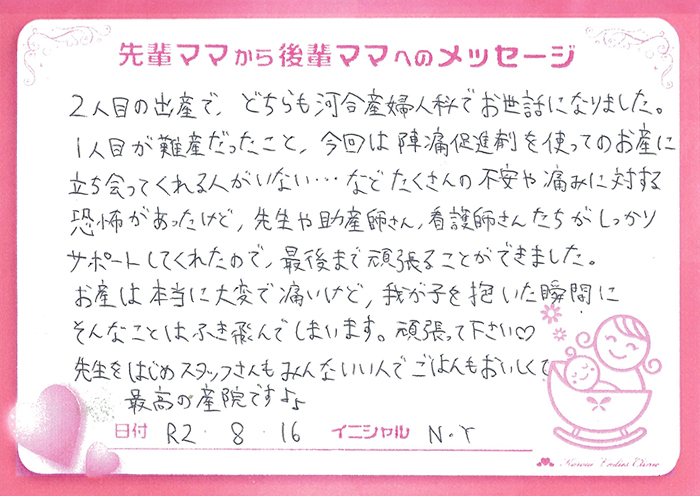 先輩ママから後輩ママへのメッセージ
2人目の出産で、どちらも河合産婦人科でお世話になりました。
1人目が難産だったこと、今回は陣痛促進剤を使ってのお産に
立ち会ってくれる人がいない…などたくさんの不安や痛みに対する
恐怖があったけど、先生や助産師さん、看護師さんたちがしっかり
サポートしてくれたので、最後まで頑張ることができました。
お産は本当に大変で痛いけど、我が子を抱いた瞬間に
そんなことはふき飛んでしまいます。頑張って下さい♡
先生をはじめスタッフさんもみんないい人でごはんもおいしくて
最高の産院です♪
日付 R2・8・16 イニシャル N・Y
Kawai Ladies Clinic